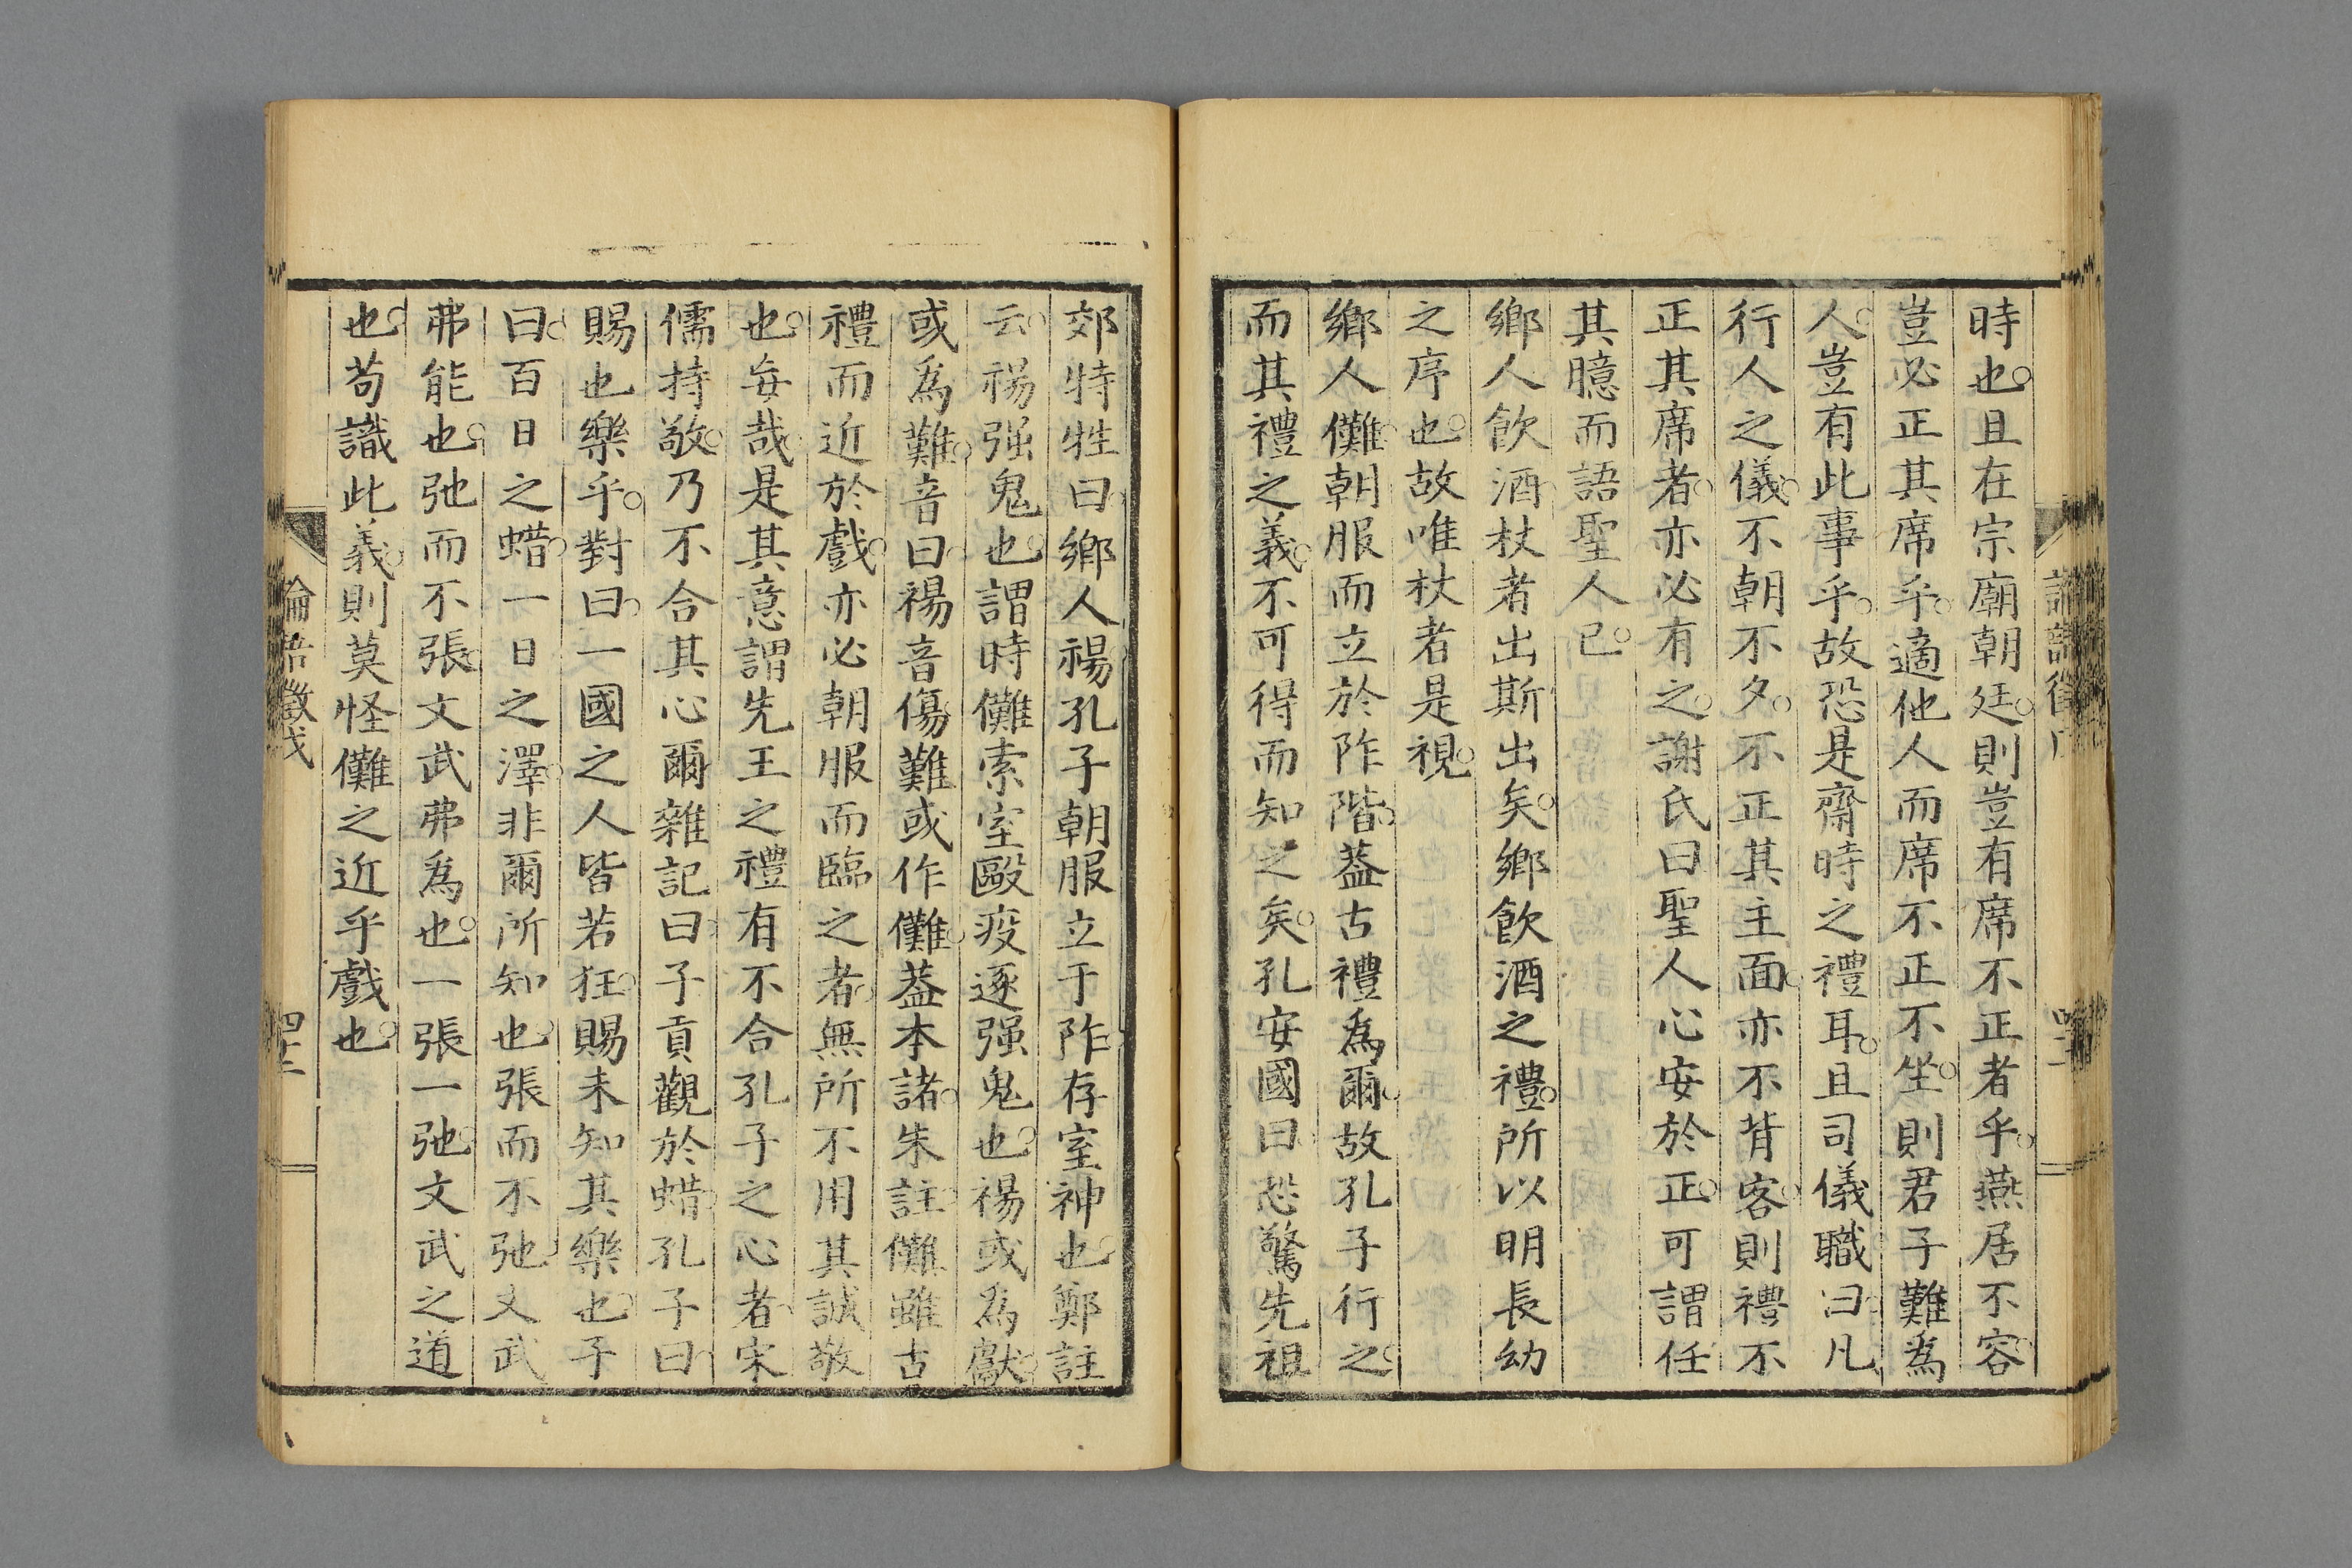 時也。且在宗廟朝廷。則豈有席不正者乎。燕居不容。
豈必正其席乎。適他人而席不正不坐。則君子難為
人。豈有此事乎。故恐是齋時之禮耳。且司儀職曰。凡
行人之儀。不朝不夕。不正其主面。亦不背客。則禮不
正其席者。亦必有之。謝氏曰聖人心安於正。可謂任
其臆而語聖人已。
鄉人飲酒。杖者出斯出矣。鄉飲酒之禮。所以明長幼
之序也。故唯杖者是視。
鄉人儺。朝服而立於阼階。蓋古禮為爾。故孔子行之。
而其禮之義。不可得而知之矣。孔安國曰。恐驚先祖
郊特牲曰。鄉人禓。孔子朝服立于阼。存室神也。鄭註
云。禓强鬼也。謂時儺索室毆疫逐强鬼也。禓或為獻。
或為難。音曰。禓音傷。難或作儺。蓋本諸。朱註。儺雖古
禮而近於戲。亦必朝服而臨之者。無所不用其誠敬
也。妄哉。是其意謂先王之禮有不合孔子之心者。宋
儒持敬。乃不合其心爾。雜記曰。子貢觀於蜡。孔子曰。
賜也樂乎。對曰。一國之人皆若狂。賜未知其樂也。子
曰。百日之蜡。一日之澤。非爾所知也。張而不弛。文武
弗能也。弛而不張。文武弗為也。一張一弛。文武之道
也。苟識此義。則莫怪儺之近乎戲也。
論語徵戊